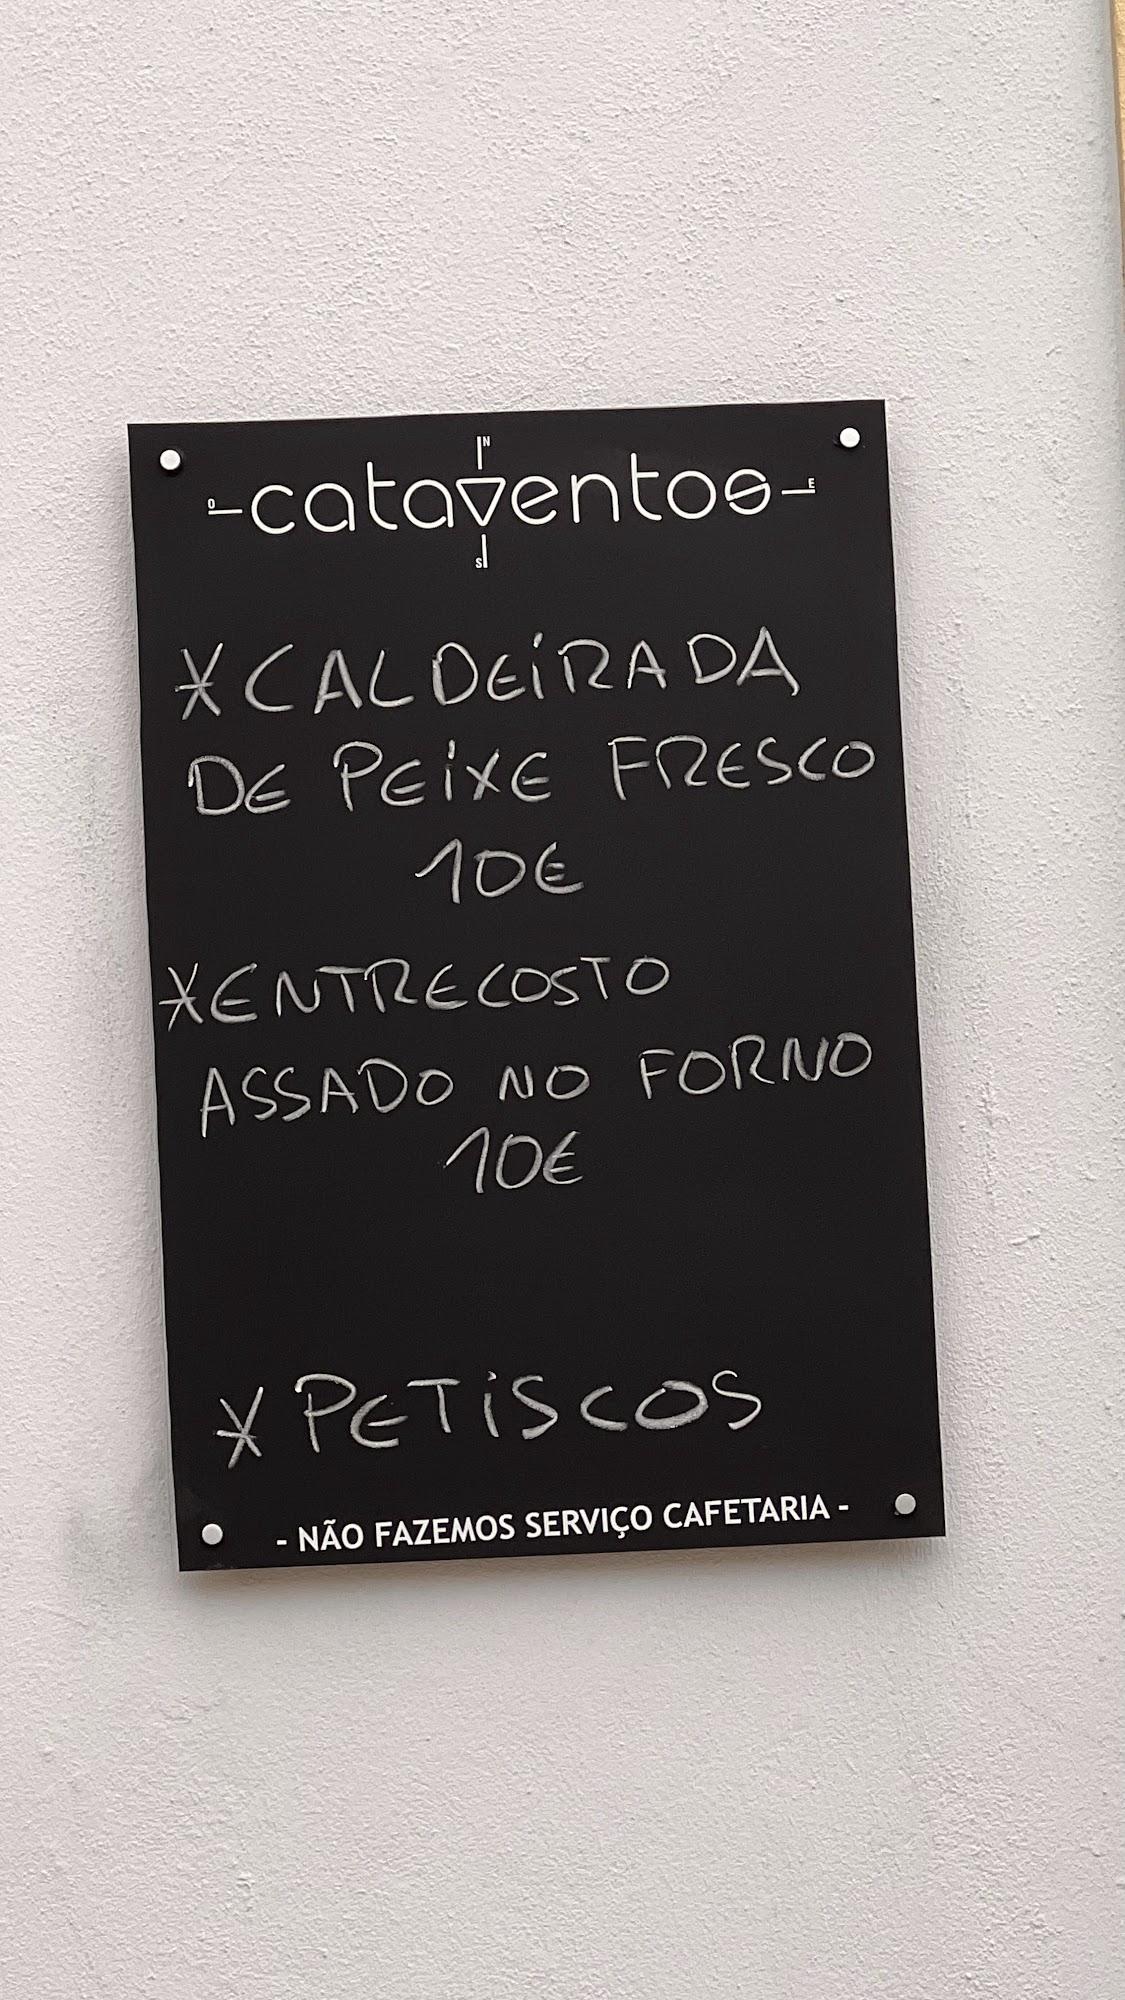 N
O cataventos E
S
*CALDEIRADA
DE PEIXE FRESCO
10€
*ENTRECOSTO
ASSADO NO FORNO
10€
* PETISCOS
- NÃO FAZEMOS SERVIÇO CAFETARIA -